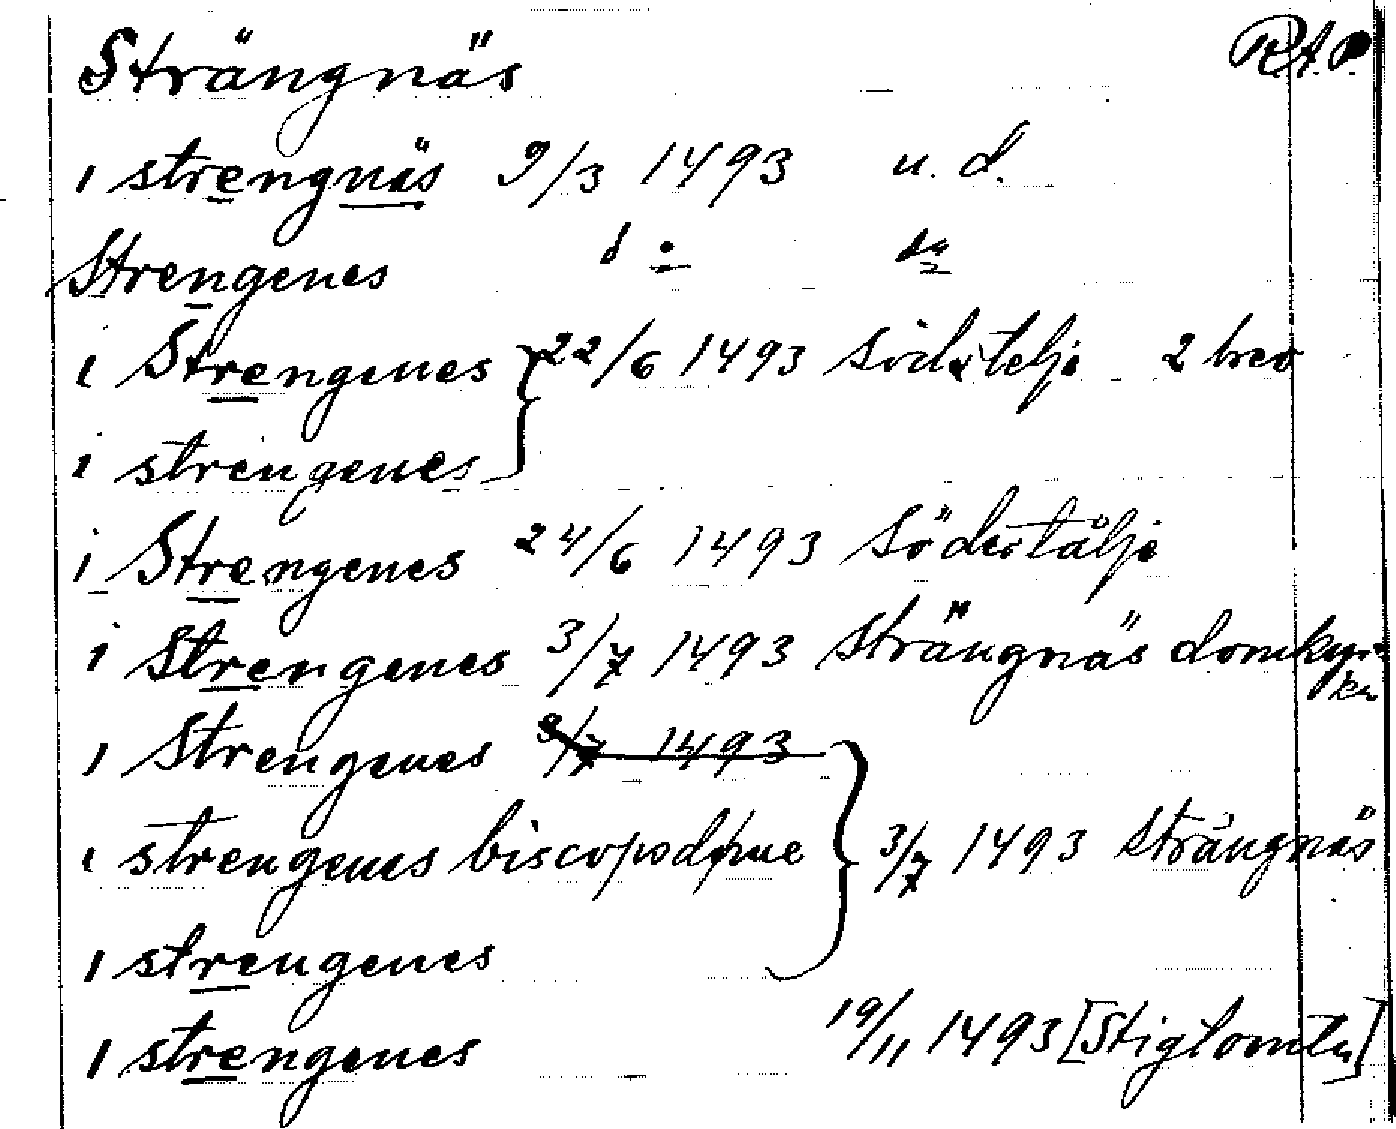 Strängnäs R.A.P.
i strengnäs 9/3 1493 u. d.
Strengenes do do
i Strengenes } 22/6 1493 Södertelje 2 brev
i strengenes
i Strengenes 24/6 1493 Södertälje
i Strengenes 3/7 1493 Strängnäs domkyrkan
i Strengenes 3/7 1493
i strengenes biscopsdøme } 3/7 1493 Strängnäs
i strengenes
i strengenes 19/11 1493 [Stigtomta]